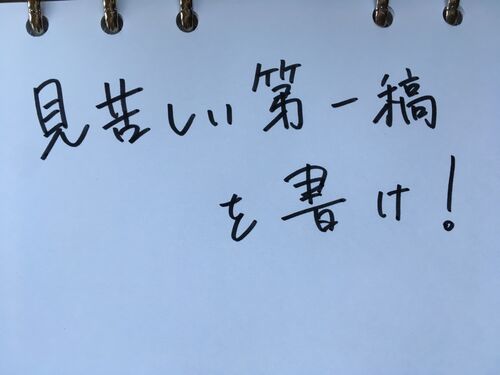 見苦しい第一稿
を書け!